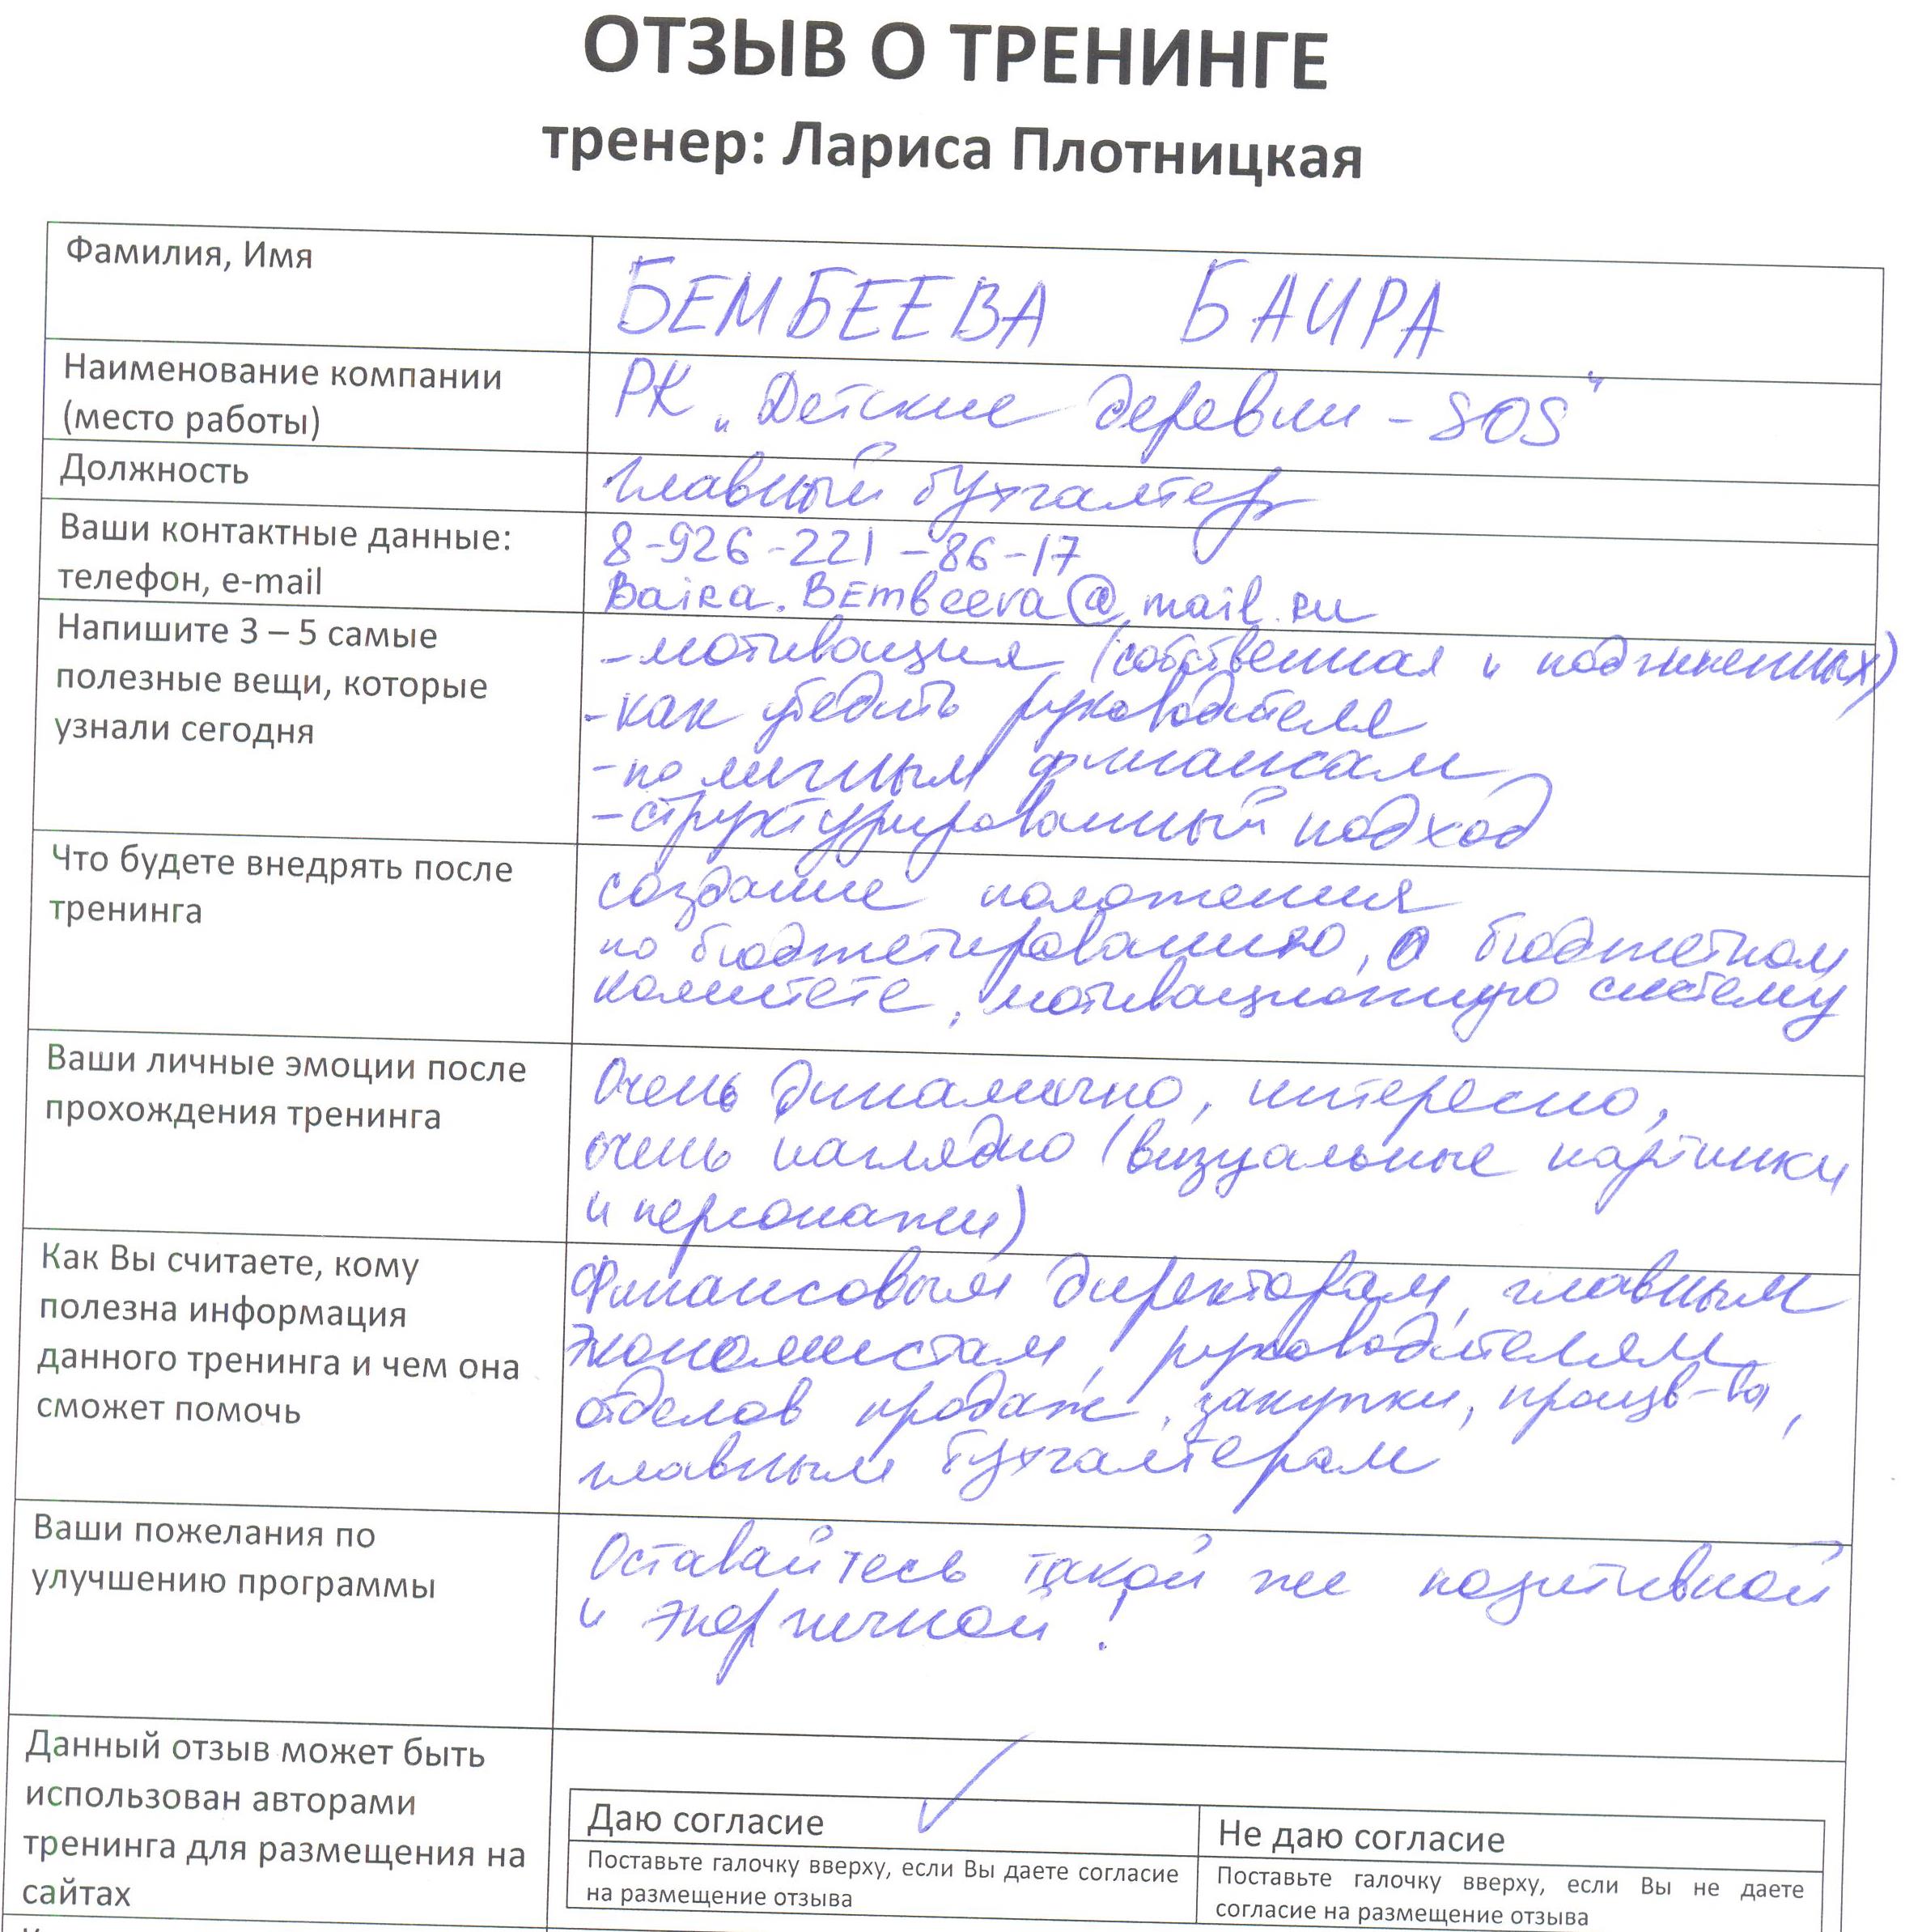 ОТЗЫВ О ТРЕНИНГЕ
тренер: Лариса Плотницкая
Фамилия, Имя
БЕМБЕЕВА БАИРА
Наименование компании
(место работы)
РК „Детские деревни - SOS"
Должность
Главный бухгалтер
Ваши контактные данные:
телефон, e-mail
8-926-221-86-17
Baira.Bembeeva@mail.ru
Напишите 3 – 5 самые
полезные вещи, которые
узнали сегодня
- мотивация (собственная и подчиненных)
- как убедить руководителя
- по личным финансам
- структурированный подход
Что будете внедрять после
тренинга
создание положения
по бюджетированию, о бюджетном
комитете, мотивационную систему
Ваши личные эмоции после
прохождения тренинга
Очень динамично, интересно,
очень наглядно (визуальные картинки
и персонажи)
Как Вы считаете, кому
полезна информация
данного тренинга и чем она
сможет помочь
Финансовым директорам, главным
экономистам, руководителям
отделов продаж, закупки, произв-ва,
главным бухгалтерам
Ваши пожелания по
улучшению программы
Оставайтесь такой же позитивной
и энергичной!
Данный отзыв может быть
использован авторами
тренинга для размещения на
сайтах
Даю согласие
Поставьте галочку вверху, если Вы даете согласие
на размещение отзыва
Не даю согласие
Поставьте галочку вверху, если Вы не даете
согласие на размещение отзыва